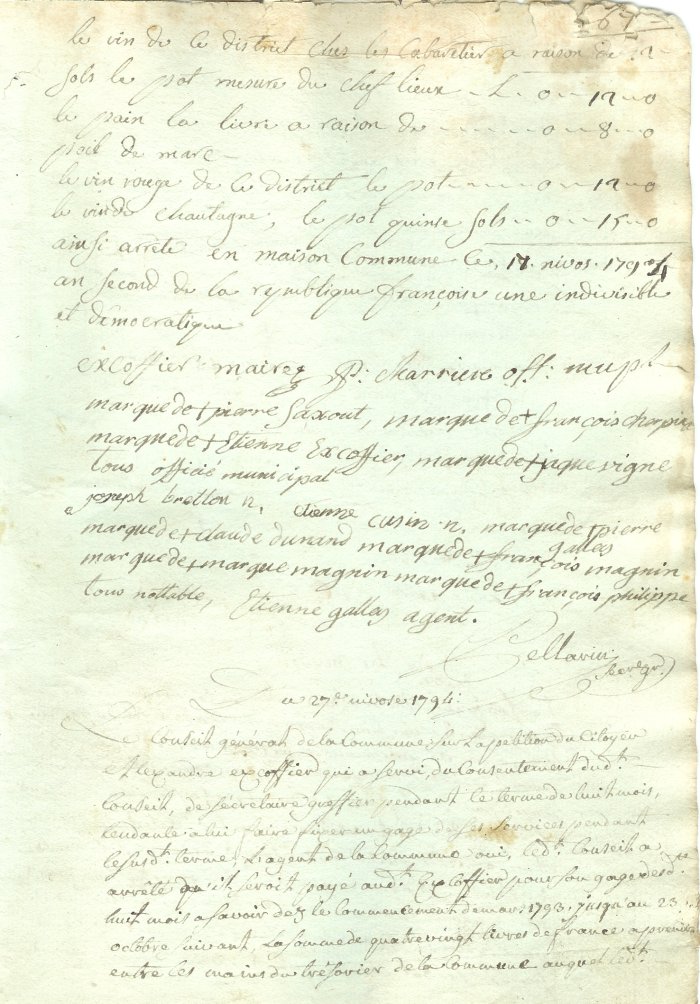 67
le vin de ce district ches les Cabaretier a raison de 12
sols le pot mesure du chef lieux - L - 0 - 12 - 0
le pain la livre a raison de - - - - - 0 - 8 - 0
poid de marc
le vin rouge de ce district le pot - - - - 0 - 12 - 0
le vin de Chautagne, le pot quinse sols - 0 - 15 - 0
ainsi arrêté en maison Commune Ce, 17. nivos. 1794
an second de la republique françoise une indivisible
et démocratique
excoffier maire p: Marriere off: mupl
marque de + pierre Saxout, marque de + françois
marque de + Etienne Excoffier, marque de + jaque vigne
tous officié municipal
joseph bretton n. etienne cusin n. marque de + pierre
galles
marque de + claude durand marque de + françois magnin
marque de + marque magnin marque de + françois philippe
tous nottable, Etienne galles agent.
Pellarin
Secre.gr.
Du 27.e nivose 1794:
Le Conseil général de la Commune, sur la petition du Citoyen
Alexandre excoffier qui a servi, du Consentement dud.t
Conseil, de sécretaire greffier pendant le terme de huit mois,
tendante a lui faire fixer un gage de ses services pendant
le susd.t terme, L'agent de la Commune oui, led.t Conseil a
arrêté qu'il seroit payé aud.t Excoffier pour son gage desd.ts
huit mois a savoir dez le commencement de mars 1793. jusqu'au 23
octobre suivant, La somme de quatre vingt livres de france a prendre
entre les mains du trésorier de la Commune auquel led.t